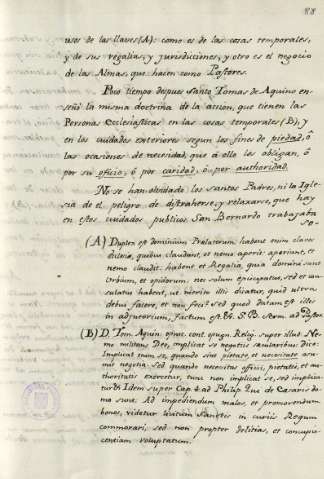 88
usos de las llaves (A): como es de las cosas temporales,
y de sus regalias, y jurisdiciones, y otro es el negocio
de las Almas, que hacen como Pastores.
Poco tiempo despues Santo Tomas de Aquino en-
señó la misma doctrina de la accion, que tienen las
Personas Eclesiasticas en las cosas temporales (B), y
en los cuidados exteriores segun los fines de piedad, ó
las ocasiones de necesidad, que á ello les obligan, ó
por su oficio, ó por caridad, ó por authoridad.
No se han olvidado los Santos Padres, ni la Igle-
sia de el peligro de distraherse, y relaxarse, que hay
en estos cuidados publicos. San Bernardo trabajaba
so-
(A) Duplex est dominium Prelatorum habent enim claves
quibus claudunt, et nemo aperit: aperiunt, et
nemo claudit. habent et Regalia, quia domini sunt
Urbium, et opidorum, nec solum episcopatus, sed et
habent, ut
(B) D. Tom. Aquin. opusc. cont. Relig. super illud Ne-
mo militans Deo, implicat se negotiis secularibus dicit:
Implicat enim se, quando sine pietate, et necesitate asu-
mit negotia sed quando necesitas officii, pietatis, et au-
thoritatis exercetur, tunc non implicat se, sed implica-
tur & Idem super Cap. 4 ad Philip. Qui de Cæsaris do-
mo sunt. Ad impediendum malos, et promovendum
bonos, videtur licitum Sanctos in curiis Regum
commorari, sed non propter delitias, et concupis-
centiam voluptatum.